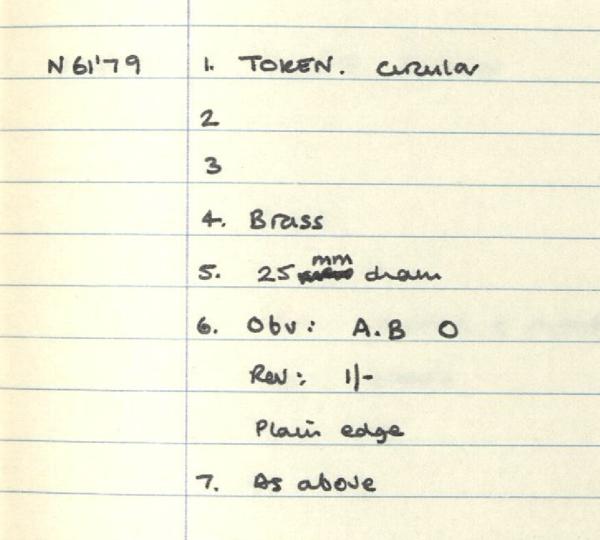 N61'79 1. TOKEN. circular
2
3
4. Brass
5. 25 mm diam
6. Obv: A.B O
Rev: 1/-
Plain edge
7. As above